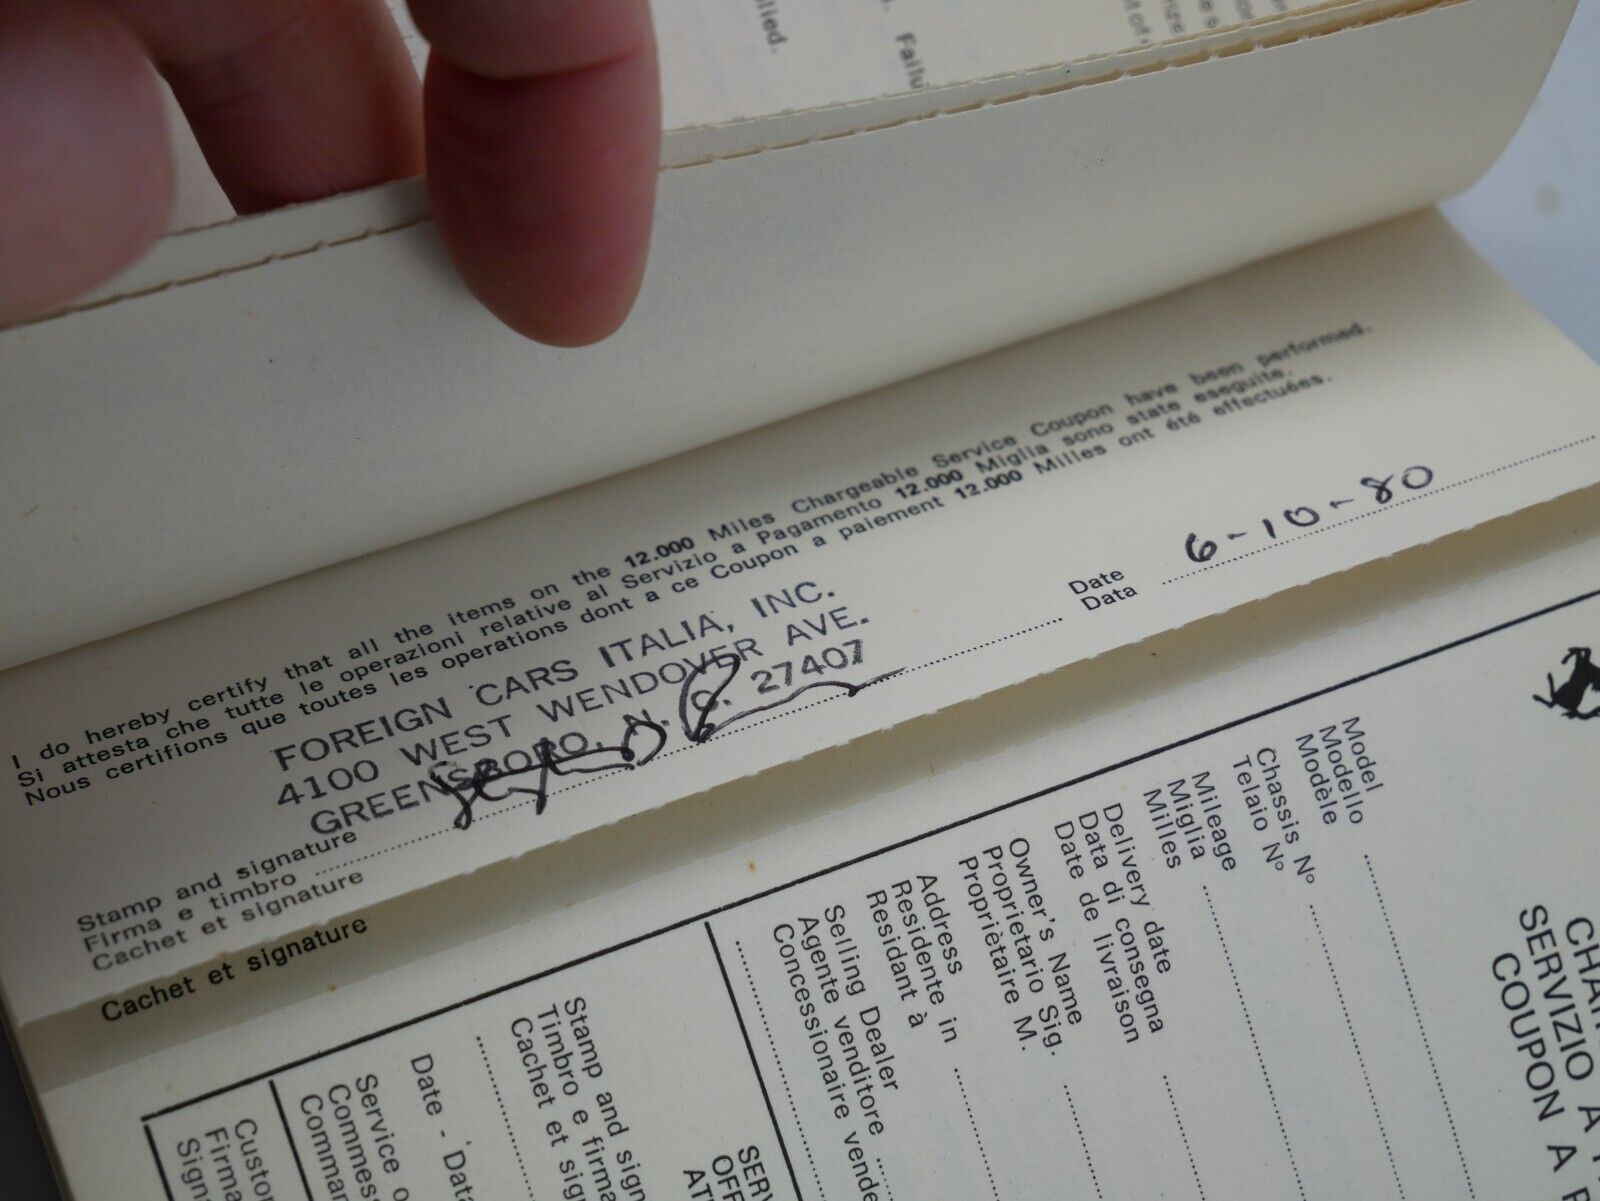 plied.
Failu
I do hereby certify that all the items on the 12.000 Miles Chargeable Service Coupon have been performed.
Si attesta che tutte le operazioni relative al Servizio a Pagamento 12.000 Miglia sono state eseguite.
Nous certifions que toutes les operations dont a ce Coupon a paiement 12.000 Milles ont été effectuées.
FOREIGN CARS ITALIA, INC.
4100 WEST WENDOVER AVE.
GREENSBORO, N. C. 27407
Date
Data
6-10-80
Stamp and signature
Firma e timbro
Cachet et signature
Cachet et signature
CHAR
SERVIZIO A
COUPON A P
Model
Modello
Modèle
Chassis N°
Telaio N°
Mileage
Miglia
Milles
Delivery date
Data di consegna
Date de livraison
Owner's Name
Proprietario Sig.
Propriètaire M.
Address in
Residente in
Residant à
Selling Dealer
Agente venditore
Concessionaire vende
SERV
OFF
AT
Stamp and sign
Timbro e firma
Cachet et sig
Date - Data
Service o
Commes
Comman
Custo
Firma
Sign